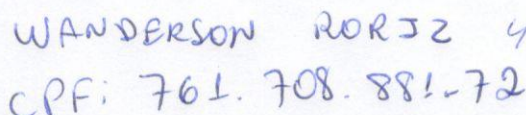 WANDERSON RORIZ
CPF: 761.708.881-72